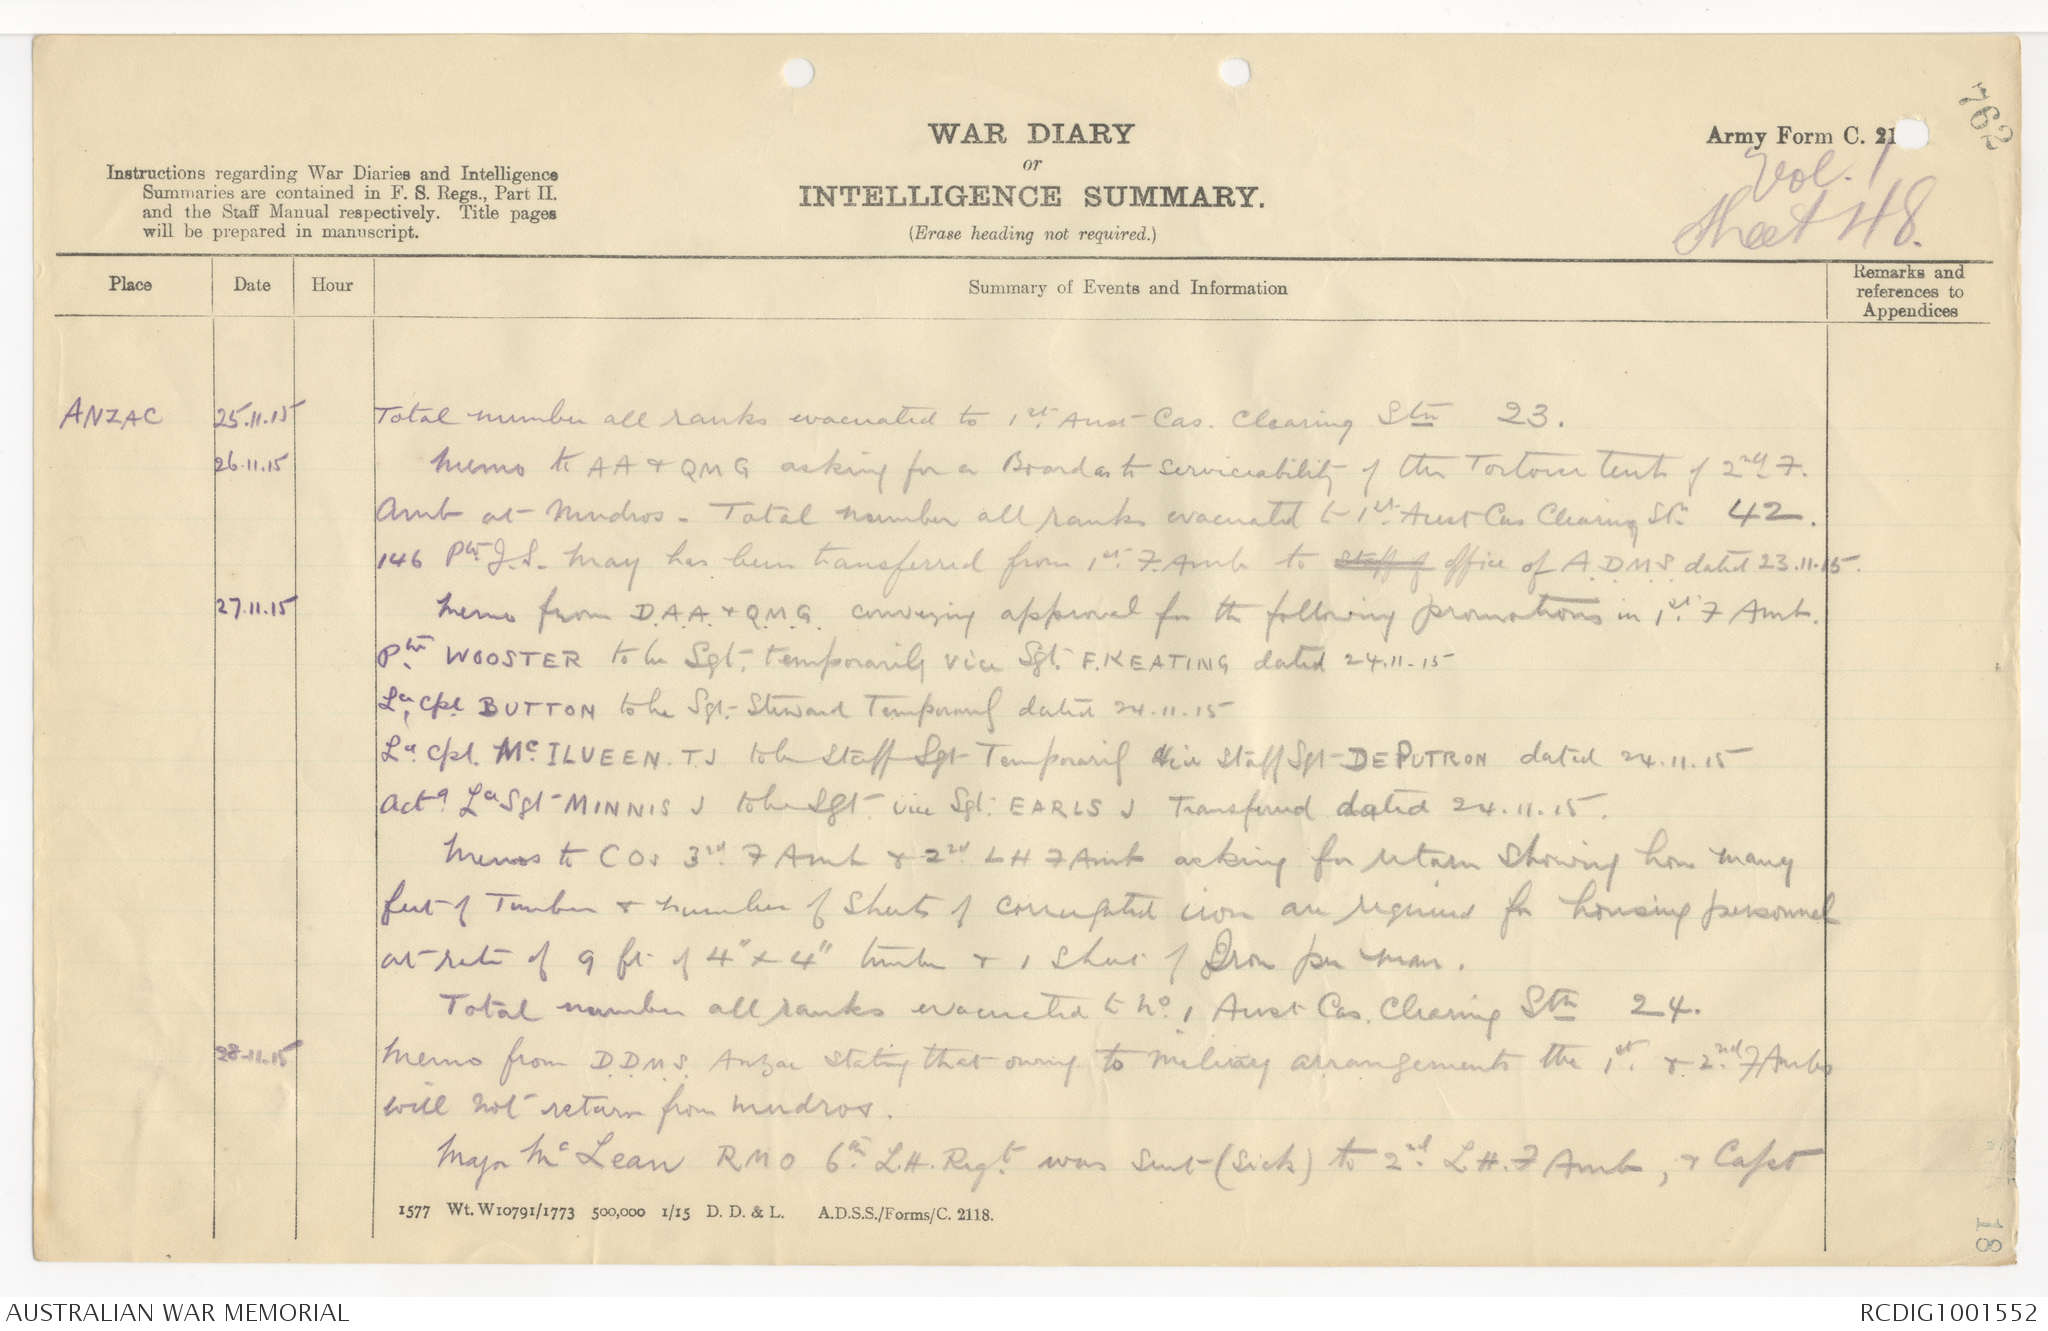 762
WAR DIARY
or
INTELLIGENCE SUMMARY.
(Erase heading not required.)
Army Form C. 21
Vol. 1
Sheet 48.
Instructions regarding War Diaries and Intelligence
Summaries are contained in F. S. Regs., Part II.
and the Staff Manual respectively. Title pages
will be prepared in manuscript.
Place
Date
Hour
Summary of Events and Information
Remarks and
references to
Appendices
ANZAC 25.11.15 Total number all ranks evacuated to 1st. Aust Cas. Clearing Stn 23.
26.11.15 Memo to AA & QMG asking for a Board as to serviceability of the Tortoise tents of 2nd F.
Amb at Mudros - Total number all ranks evacuated to 1st. Aust Cas Clearing Stn 42.
146 Pte J.S. May has been transferred from 1st. F. Amb to Staff of office of A.D.M.S. dated 23.11.15.
27.11.15 Memo from D.A.A. & Q.M.G. conveying approval for the following promotions in 1st. F Amb.
Pte WOOSTER to be Sgt. temporarily vice Sgt. F. KEATING dated 24.11.15
Lce Cpl BUTTON to be Sgt. Steward Temporarily dated 24.11.15
Lce Cpl. McILVEEN. T.J to be Staff Sgt Temporarily vice Staff Sgt DE PUTRON dated 24.11.15
Actg Lce Sgt MINNIS J to be Sgt. vice Sgt. EARLS J Transferred dated 24.11.15.
Memos to COs 3rd. F Amb & 2nd. LH F Amb asking for return showing how many
feet of Timber & number of sheets of corrugated iron are required for housing personnel
at rate of 9 ft of 4" x 4" timber & 1 sheet of Iron per man.
Total number all ranks evacuated to No. 1 Aust Cas. Clearing Stn 24.
28.11.15 Memo from D.D.M.S. Anzac stating that owing to military arrangements the 1st. & 2nd. F Ambs
will not return from Mudros.
Major McLean RMO 6th L.H. Regt was sent (sick) to 2nd. L.H. F Amb, & Capt
1577 Wt. W10791/1773 500,000 1/15 D. D. & L. A.D.S.S./Forms/C. 2118.
18
AUSTRALIAN WAR MEMORIAL
RCDIG1001552